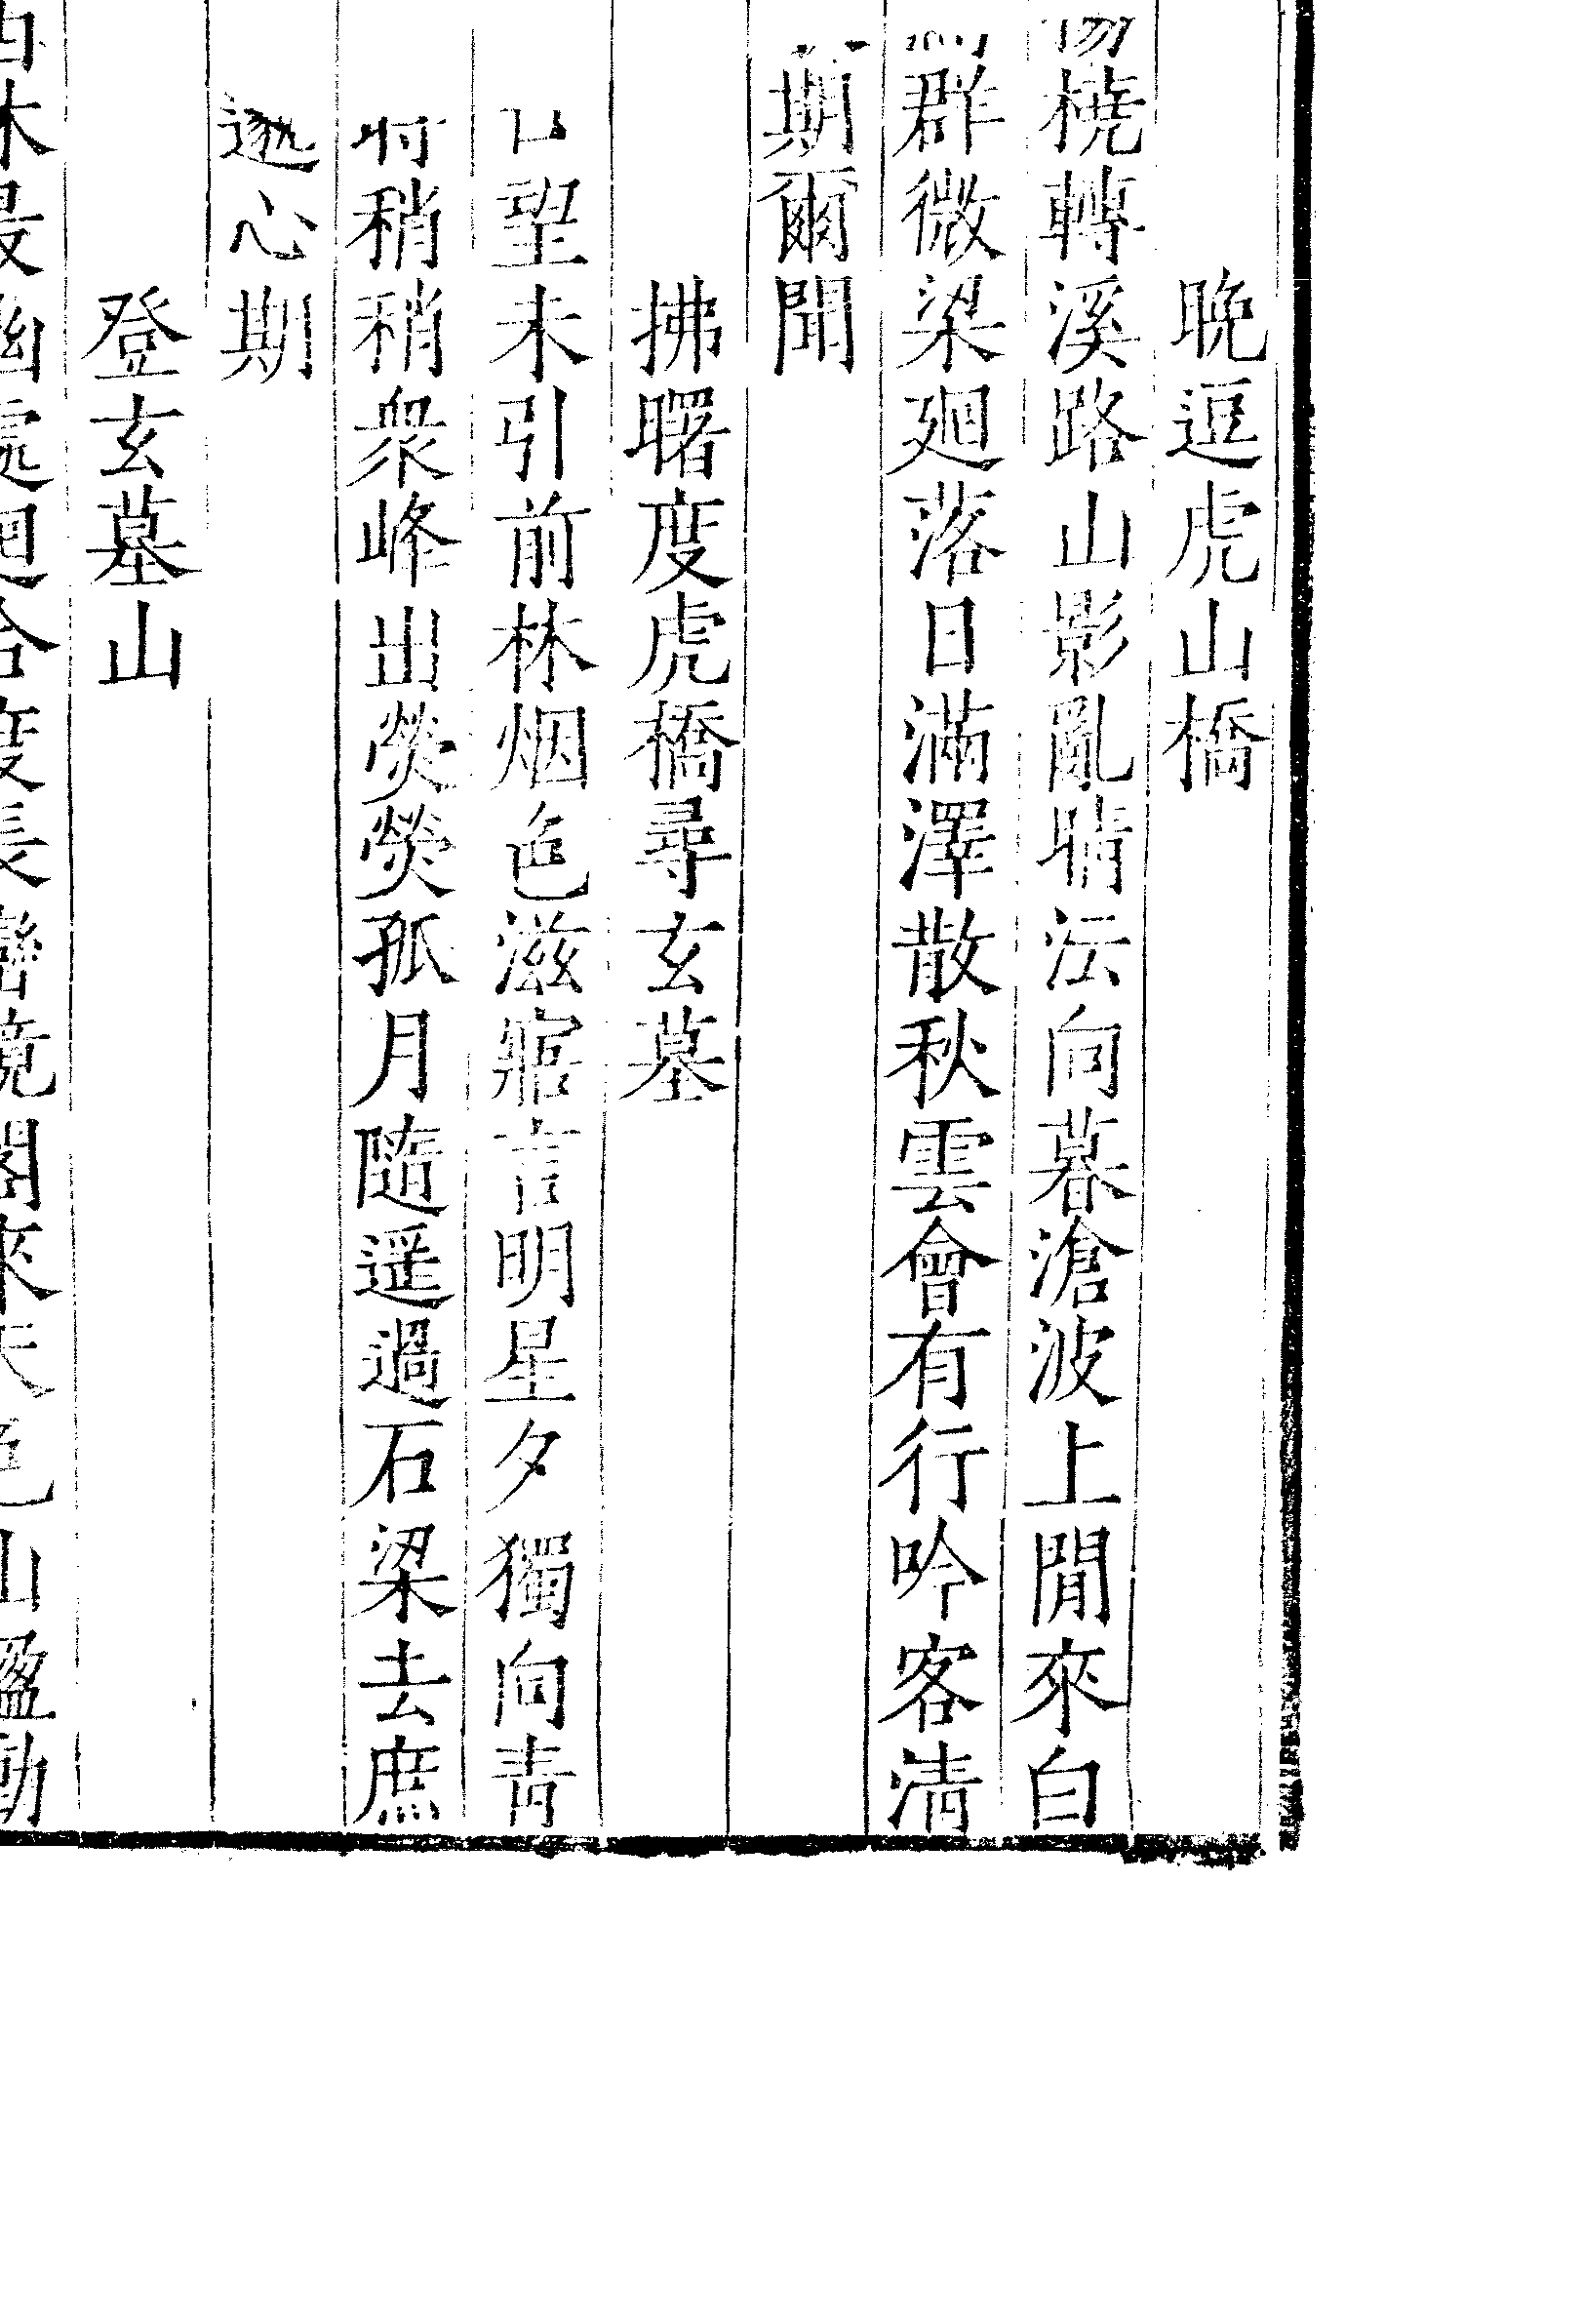 晚逗虎山橋
橈轉溪路山影亂晴沄向暮滄波上閒來白
群微梁廻落日滿澤散秋雲會有行吟客清
期爾聞
拂曙度虎橋尋玄墓
望未引前林烟色滋寤言明星夕獨向青
稍稍衆峰出熒熒孤月隨遥過石梁去庶
遯心期
登玄墓山